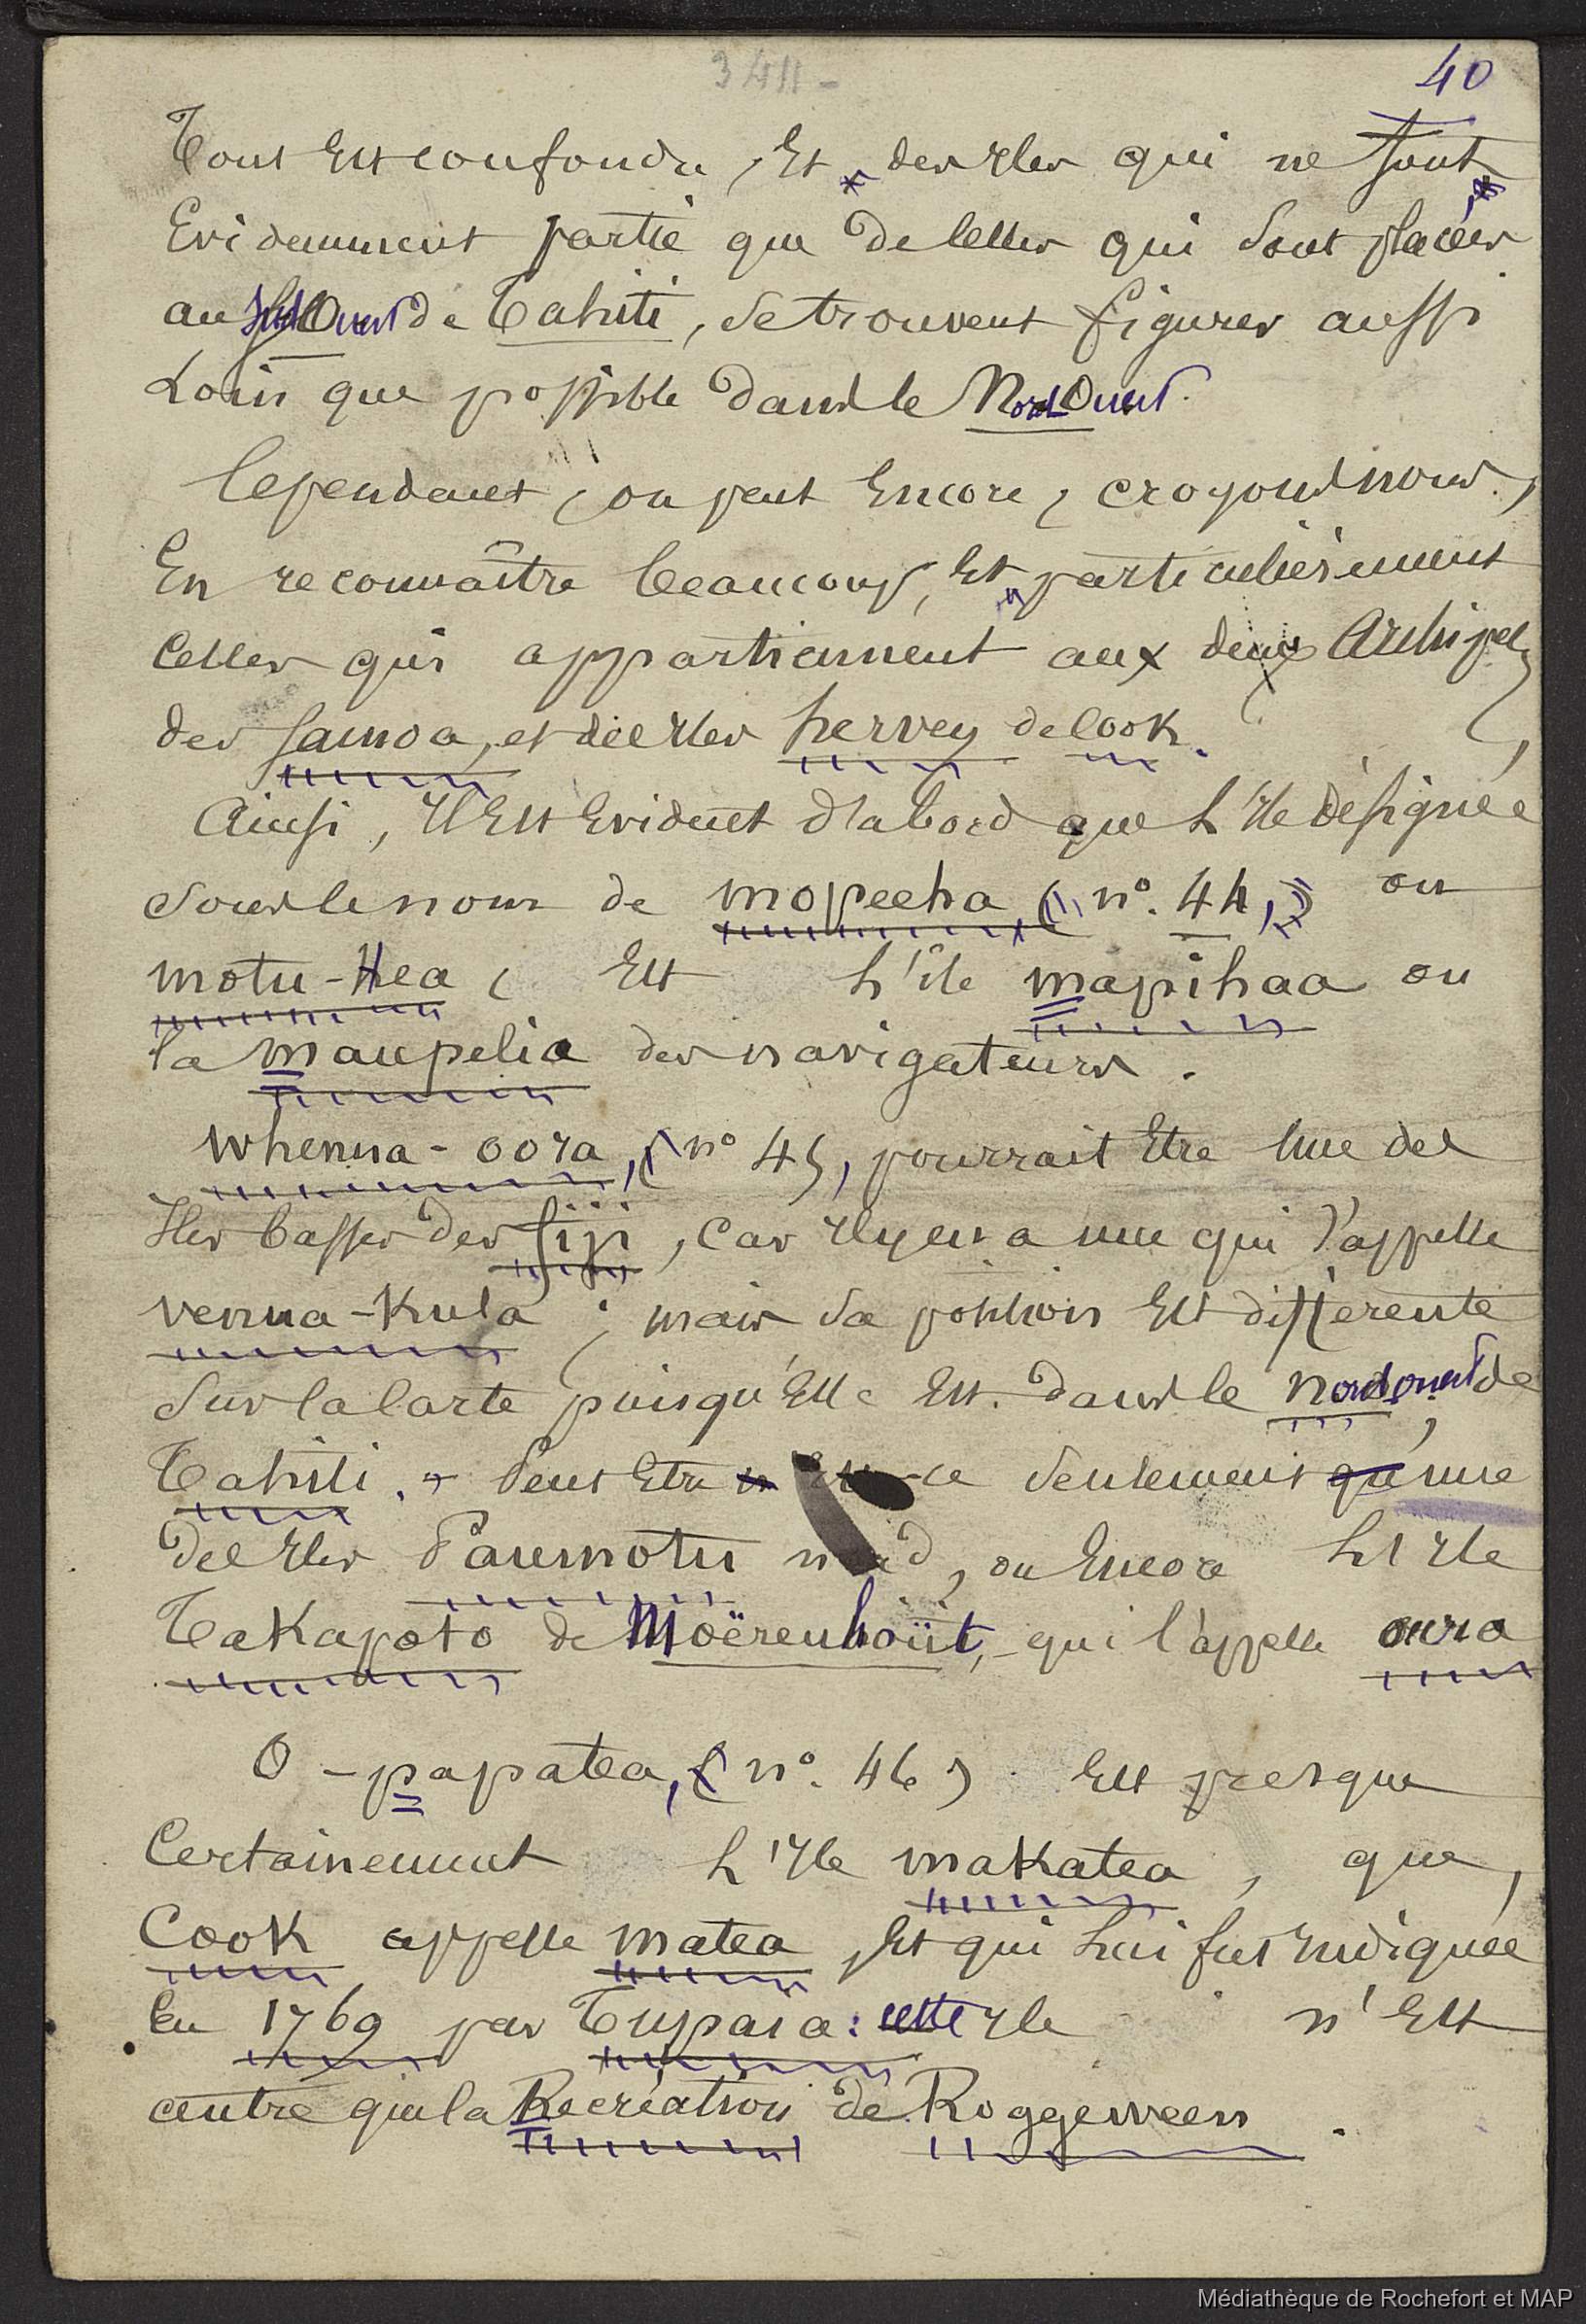 3411 -
40
Tout Est confondu, Et des Iles qui ne font
Evidemment partie que de celles qui sont placées
au Sud Ouest de Tahiti, se trouvent figurer aussi
Loin que possible dans le Nord Ouest.
Cependant, on peut Encore, croyons nous,
En reconnaître beaucoup, Et particulièrement
Celles qui appartiennent aux deux Archipels
des Samoa, et des Iles hervey de Cook.
Ainsi, Il Est Evident d'abord que L'Ile désignée
sous le nom de mopeeha (n°. 44,) ou
motu-Hea, Est L'ile mapihaa ou
la maupelia des navigateurs.
Whenna-oora, (n° 45, pourrait Etre Une des
Iles basses des fiji, Car Il y en a une qui s'appelle
venua-Kula ; mais sa position Est différente
sur la Carte puisqu'Elle Est dans le nord ouest de
Tahiti. Peut Etre -ce seulement que une
des Iles Paumotu nord, ou Encore L'Ile
Takapoto de Moërenhoüt, qui l'appelle oura
O-papatea, (n°. 46) Est presque
Certainement L'Ile maKatea, que,
Cook appelle matea, Et qui Lui fut Indiquée
En 1769 par Tupaia : cette Ile n'Est
autre que la Recréation de Roggeween.
Médiathèque de Rochefort et MAP